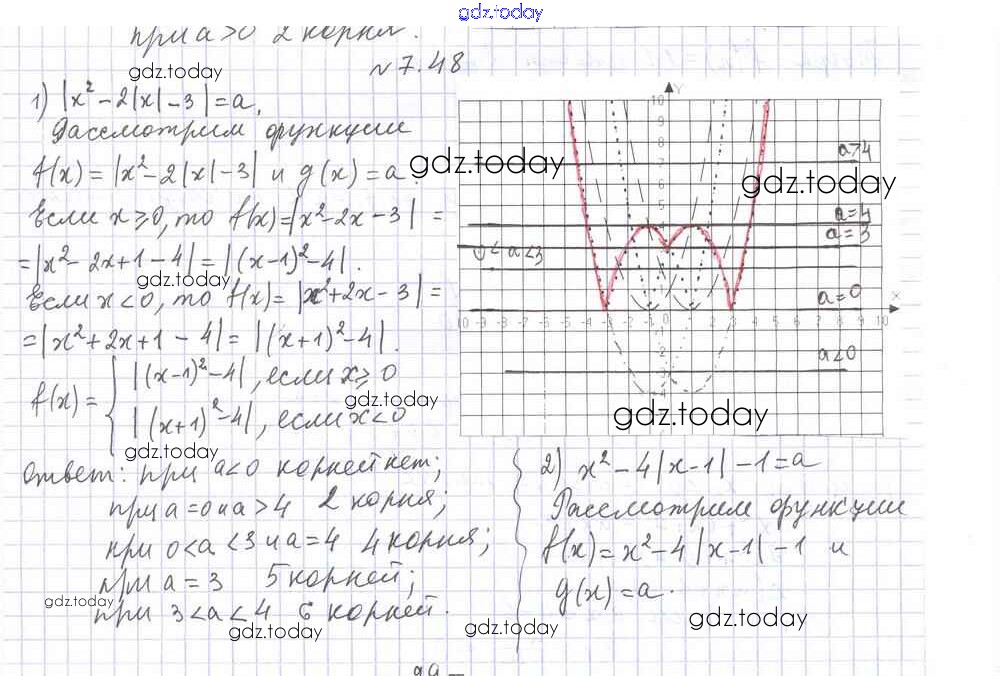 gdz.today
при a>0 2 корня.
gdz.today
№7.48
1) |x²-2|x|-3|=a.
Рассмотрим функции
f(x)=|x²-2|x|-3| и g(x)=a.
gdz.today
Если x≥0, то f(x)=|x²-2x-3|=
=|x²-2x+1-4|=|(x-1)²-4|.
gdz.today
Если x<0, то f(x)=|x²+2x-3|=
=|x²+2x+1-4|=|(x+1)²-4|.
f(x)={ |(x-1)²-4|, если x≥0
gdz.today
|(x+1)²-4|, если x<0
gdz.today
Ответ: при a<0 корней нет;
при a=0 и a>4 2 корня;
при 0<a<3 и a=4 4 корня;
при a=3 5 корней;
gdz.today
при 3<a<4 6 корней.
gdz.today
Y
10
9
8
7
6
5
a>4
gdz.today
a=4
a=3
0<a<3
a=0
X
-10 -9 -8 -7 -6 -5 -4 -3 -2 -1 0 1 2 3 4 5 6 7 8 9 10
-2
-4
a<0
gdz.today
2) x²-4|x-1|-1=a
Рассмотрим функции
f(x)=x²-4|x-1|-1 и
g(x)=a.
gdz.today
gdz.today